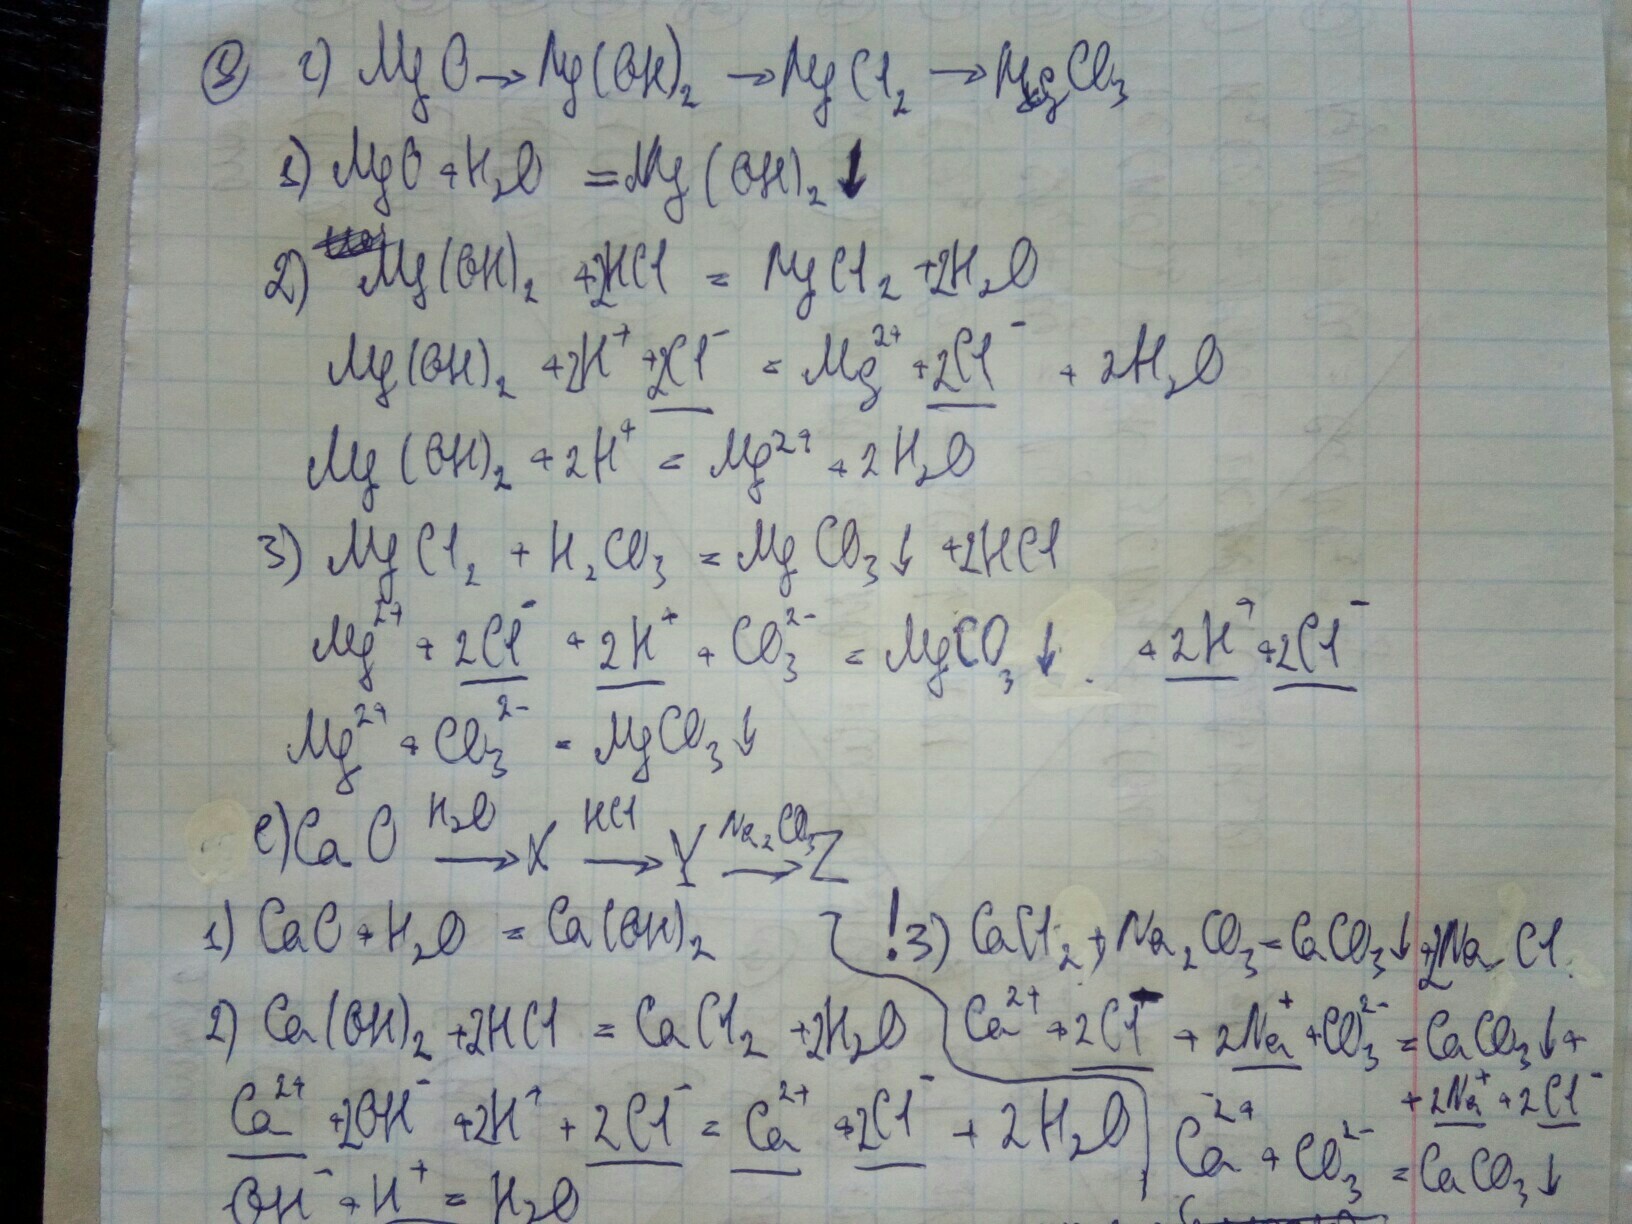 ③ г) MgO → Mg(OH)₂ → MgCl₂ → MgCO₃
1) MgO + H₂O = Mg(OH)₂↓
2) Mg(OH)₂ + 2HCl = MgCl₂ + 2H₂O
Mg(OH)₂ + 2H⁺ + 2Cl⁻ = Mg²⁺ + 2Cl⁻ + 2H₂O
Mg(OH)₂ + 2H⁺ = Mg²⁺ + 2H₂O
3) MgCl₂ + H₂CO₃ = MgCO₃↓ + 2HCl
Mg²⁺ + 2Cl⁻ + 2H⁺ + CO₃²⁻ = MgCO₃↓ + 2H⁺ + 2Cl⁻
Mg²⁺ + CO₃²⁻ = MgCO₃↓
e) CaO →(H₂O) X →(HCl) Y →(Na₂CO₃) Z
1) CaO + H₂O = Ca(OH)₂
2) Ca(OH)₂ + 2HCl = CaCl₂ + 2H₂O
Ca²⁺ + 2OH⁻ + 2H⁺ + 2Cl⁻ = Ca²⁺ + 2Cl⁻ + 2H₂O
OH⁻ + H⁺ = H₂O
! 3) CaCl₂ + Na₂CO₃ = CaCO₃↓ + 2NaCl
Ca²⁺ + 2Cl⁻ + 2Na⁺ + CO₃²⁻ = CaCO₃↓ +
+ 2Na⁺ + 2Cl⁻
Ca²⁺ + CO₃²⁻ = CaCO₃↓